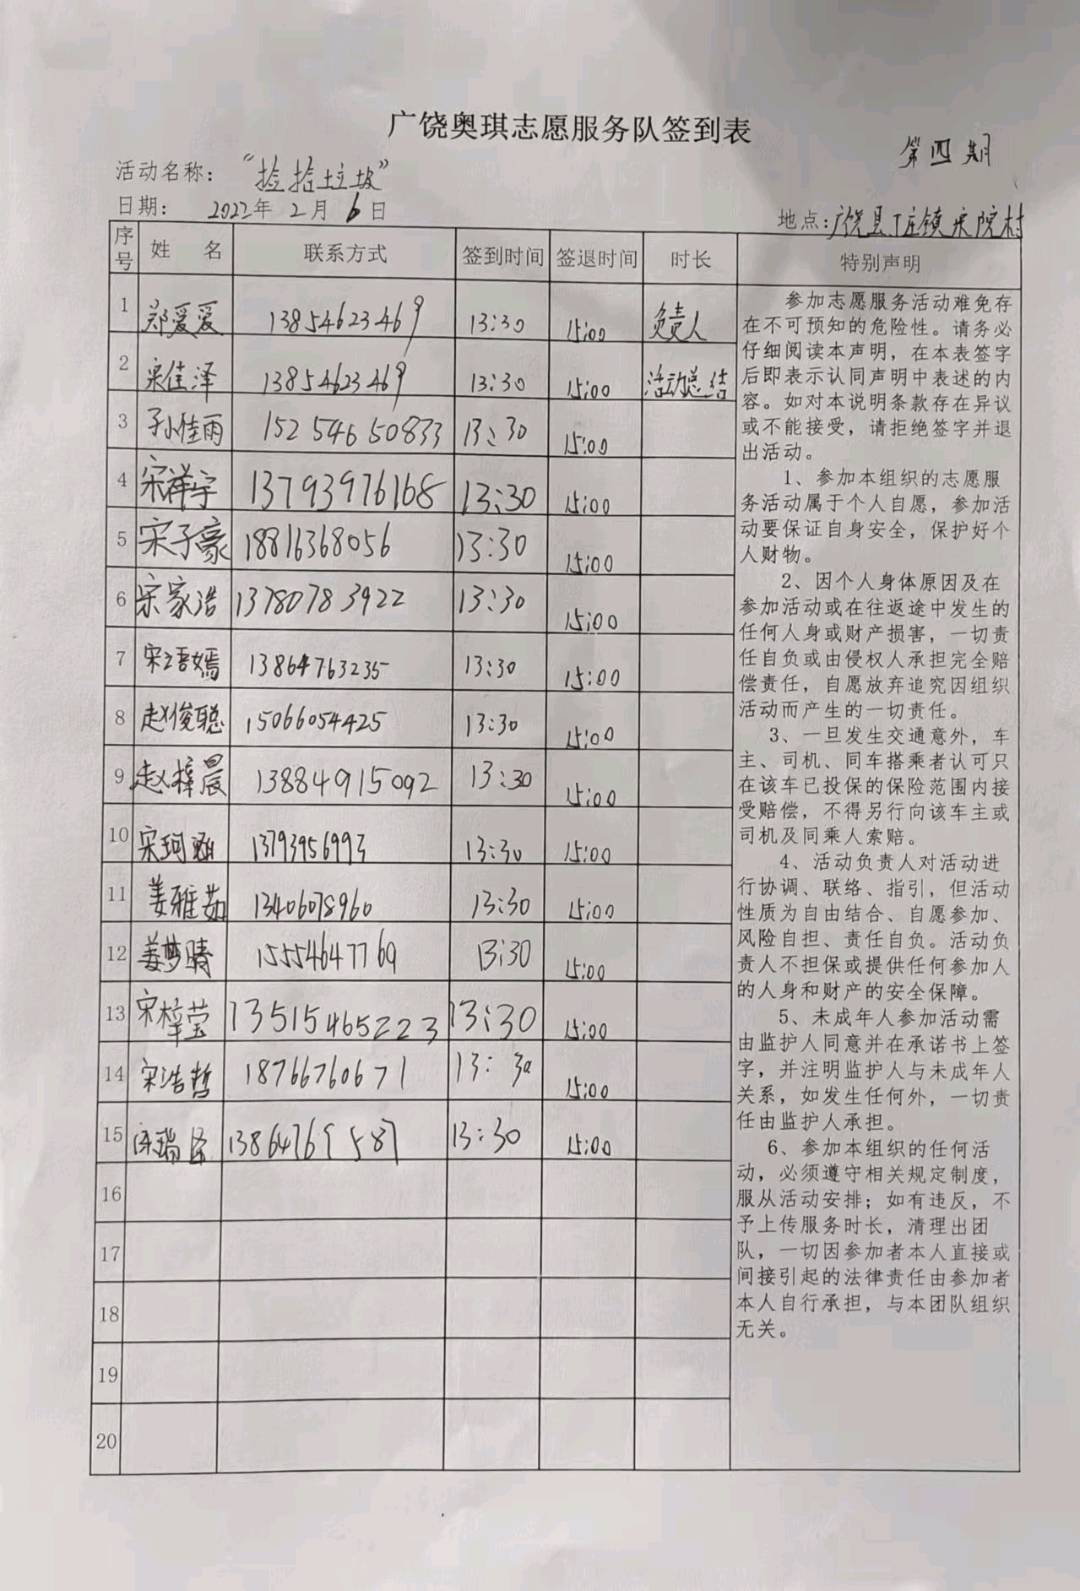 广饶奥琪志愿服务队签到表
第四期
活动名称："捡拾垃圾"
日期： 2022年 2月 6日
地点：广饶县丁庄镇宋院村
序号 姓 名 联系方式 签到时间 签退时间 时长 特别声明
1 郑爱爱 13854623469 13:30 15:00 负责人
2 宋佳泽 13854623469 13:30 15:00 活动总结
3 孙佳雨 15254650833 13:30 15:00
4 宋祥宇 13793976168 13:30 15:00
5 宋子豪 18816368056 13:30 15:00
6 宋家浩 13780783922 13:30 15:00
7 宋语嫣 13864763235 13:30 15:00
8 赵俊聪 15066054425 13:30 15:00
9 赵梓晨 13884915092 13:30 15:00
10 宋珂涵 13793956993 13:30 15:00
11 姜雅茹 13406078960 13:30 15:00
12 姜梦晴 15554647769 13:30 15:00
13 宋梓莹 13515465223 13:30 15:00
14 宋浩哲 18766760671 13:30 15:00
15 13864769587 13:30 15:00
16
17
18
19
20
参加志愿服务活动难免存
在不可预知的危险性。请务必
仔细阅读本声明，在本表签字
后即表示认同声明中表述的内
容。如对本说明条款存在异议
或不能接受，请拒绝签字并退
出活动。
1、参加本组织的志愿服
务活动属于个人自愿，参加活
动要保证自身安全，保护好个
人财物。
2、因个人身体原因及在
参加活动或在往返途中发生的
任何人身或财产损害，一切责
任自负或由侵权人承担完全赔
偿责任，自愿放弃追究因组织
活动而产生的一切责任。
3、一旦发生交通意外，车
主、司机、同车搭乘者认可只
在该车已投保的保险范围内接
受赔偿，不得另行向该车主或
司机及同乘人索赔。
4、活动负责人对活动进
行协调、联络、指引，但活动
性质为自由结合、自愿参加、
风险自担、责任自负。活动负
责人不担保或提供任何参加人
的人身和财产的安全保障。
5、未成年人参加活动需
由监护人同意并在承诺书上签
字，并注明监护人与未成年人
关系，如发生任何外，一切责
任由监护人承担。
6、参加本组织的任何活
动，必须遵守相关规定制度，
服从活动安排；如有违反，不
予上传服务时长，清理出团
队，一切因参加者本人直接或
间接引起的法律责任由参加者
本人自行承担，与本团队组织
无关。